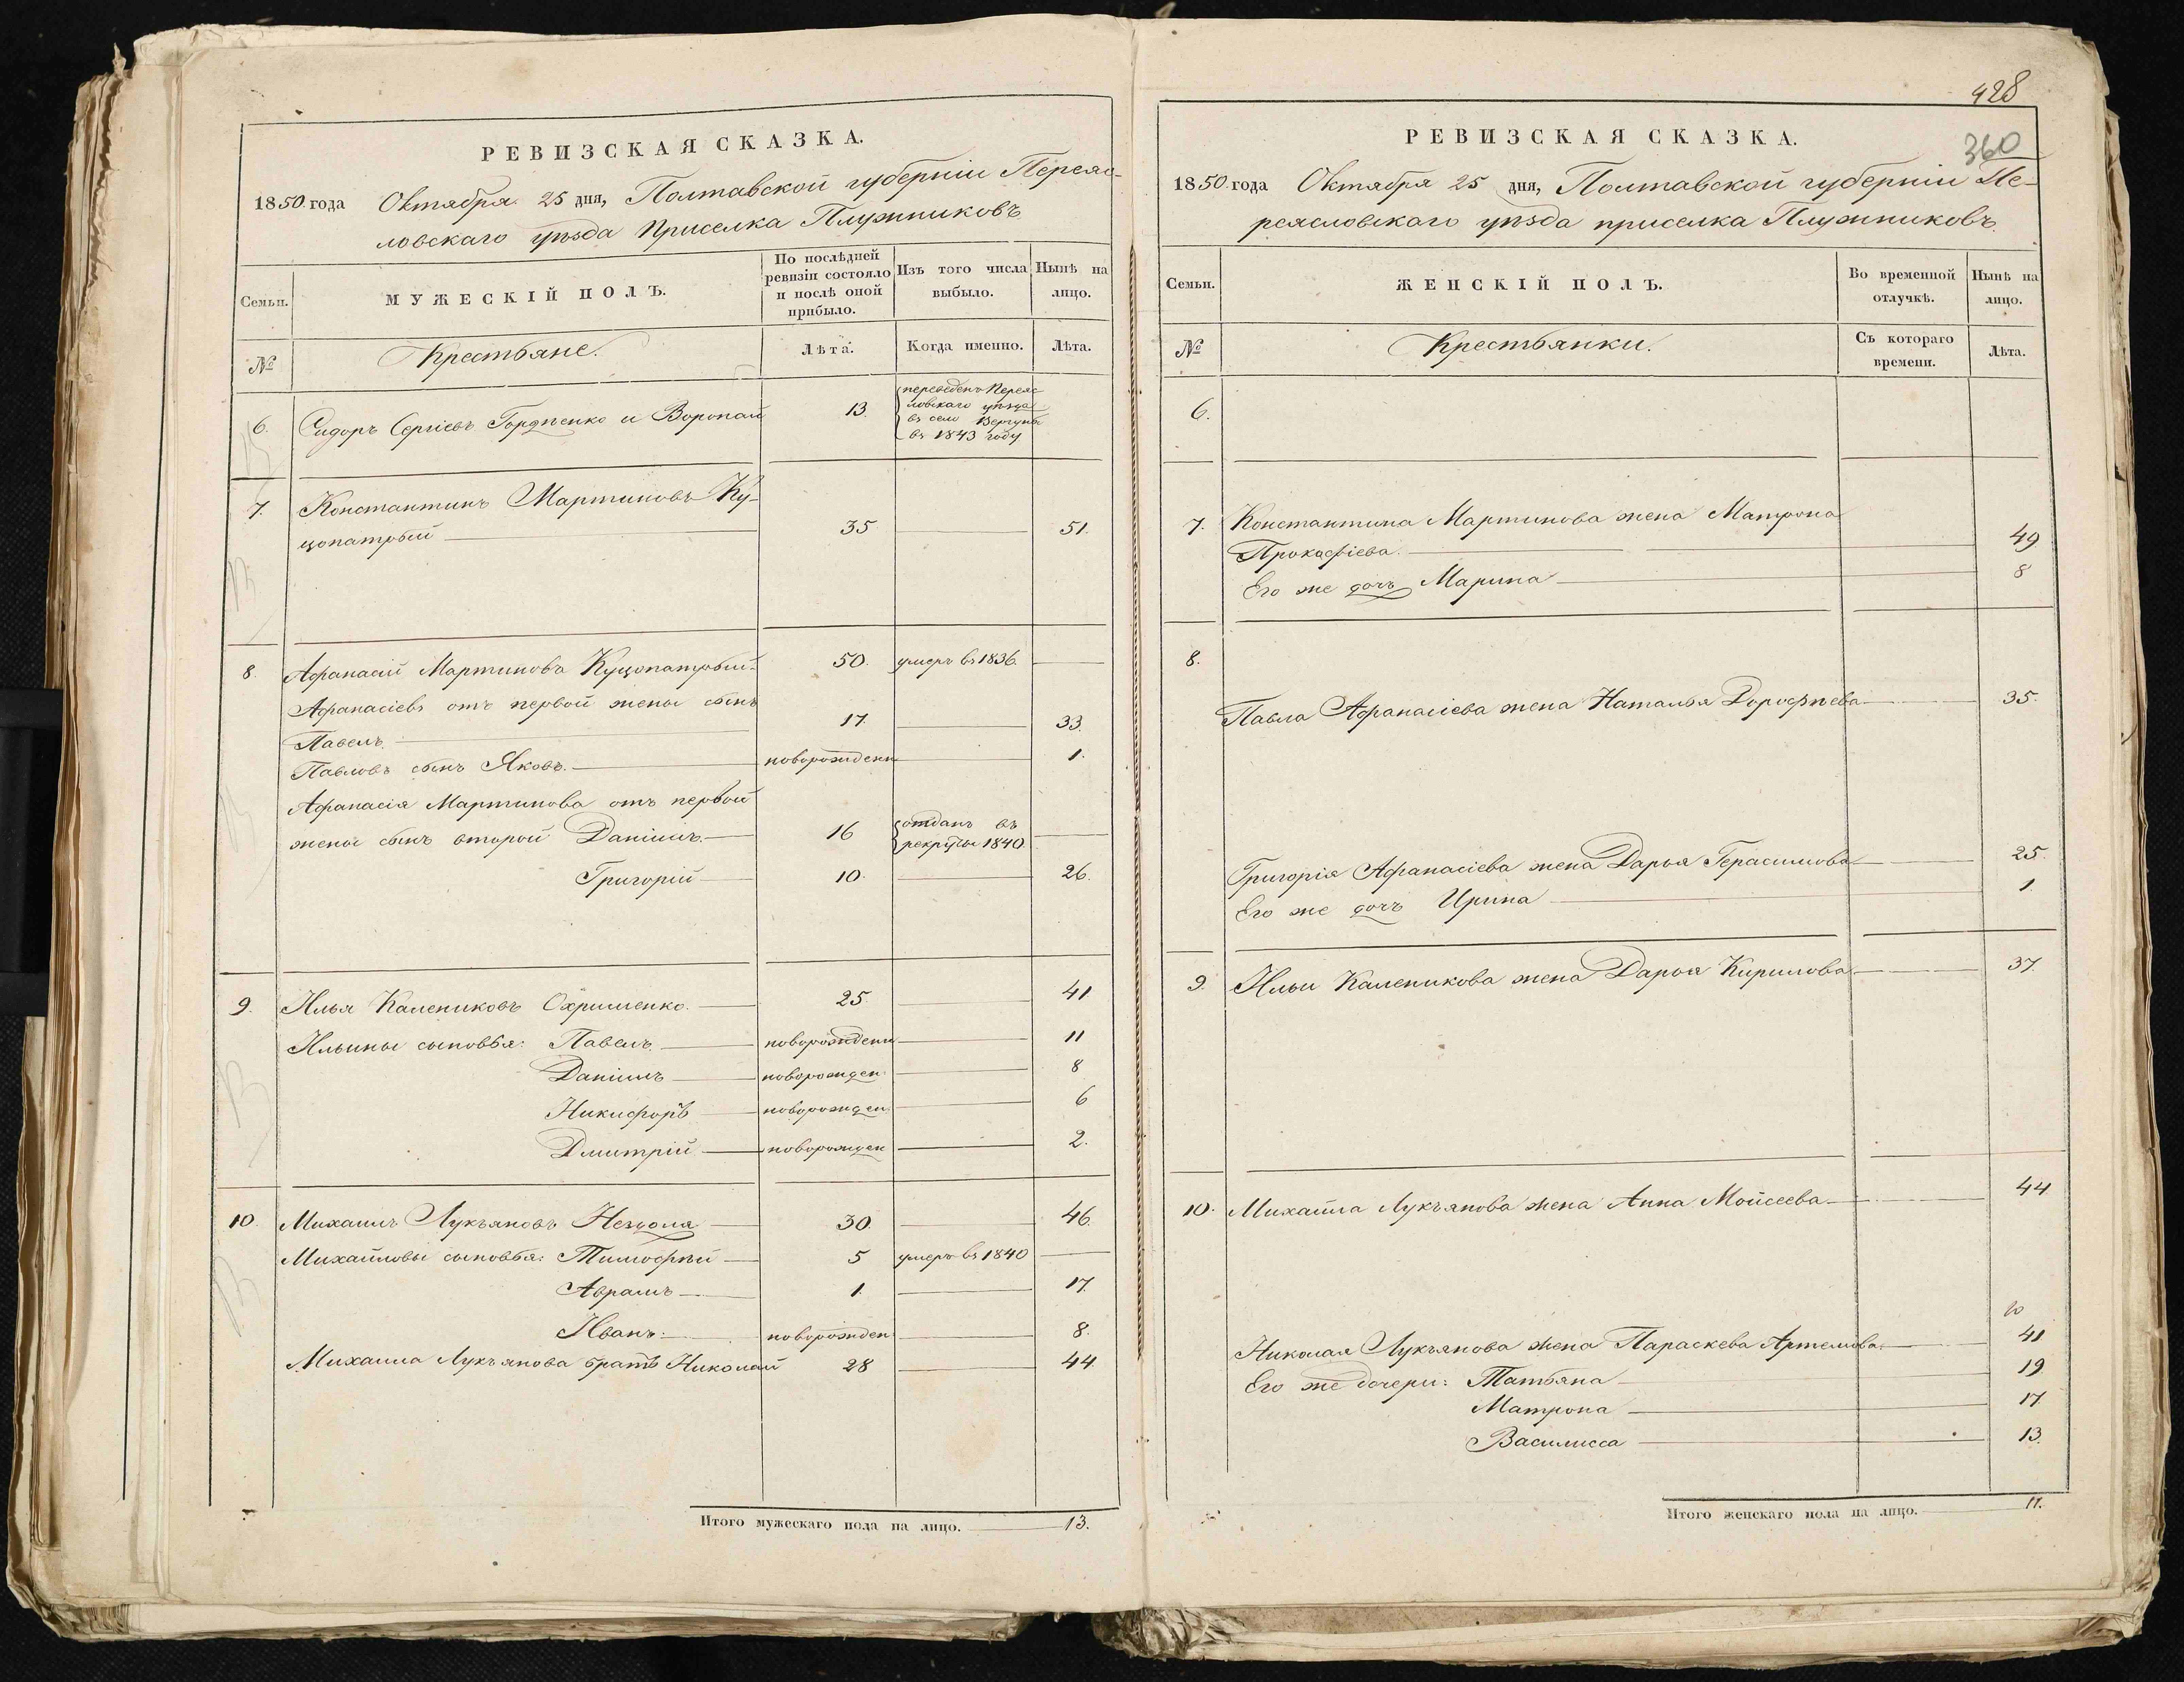 РЕВИЗСКАЯ СКАЗКА.
1850 года Октября 25 дня, Полтавской губерніи Переяс-
ловскаго уѣзда приселка Плужниковъ
Семьи. МУЖЕСКІЙ ПОЛЪ. По послѣдней ревизіи состояло и послѣ оной прибыло. Изъ того числа выбыло. Нынѣ на лицо.
№ Крестьяне. Лѣта. Когда именно. Лѣта.
6. Сидоръ Сергіевъ Гордѣенко и Воропай 13. переведенъ Переяс-
ловскаго уѣзда
въ село
въ 1843 году
7. Константинъ Мартиновъ Ку-
цопатрый 35 51.
8. Афанасій Мартиновъ Куцопатрый 50. умеръ въ 1836.
Афанасіевъ отъ первой жены сынъ
Павелъ 17. 33.
Павловъ сынъ Яковъ. новорожденн 1.
Афанасія Мартинова отъ первой
жены сынъ второй Даніилъ. 16 отданъ въ
рекруты 1840.
Григорій 10. 26.
9. Илья Калениковъ Охрименко. 25. 41
Ильины сыновья: Павелъ новорожденн 11
Даніилъ новорожден 8
Никифоръ новорожден 6
Дмитрій новорожден 2.
10. Михаилъ Лукъяновъ 30. 46.
Михайловы сыновья: Тимофѣй 5 умеръ въ 1840
Аврамъ 1. 17.
Иванъ: новорожден 8.
Михаила Лукъянова братъ Николай 28 44.
Итого мужескаго пола на лицо. 13.
428
360
РЕВИЗСКАЯ СКАЗКА.
1850 года Октября 25 дня, Полтавской губерніи Пе-
реясловскаго уѣзда приселка Плужниковъ.
Семьи. ЖЕНСКІЙ ПОЛЪ. Во временной отлучкѣ. Нынѣ на лицо.
№ Крестьянки. Съ котораго времени. Лѣта.
6.
7. Константина Мартинова жена Матрона
Прокофіева. 49
Его же дочь Марина 8
8.
Павла Афанасіева жена Наталья Дорофѣева 35.
Григорія Афанасіева жена Дарья Герасимова 25.
Его же дочь Ирина 1.
9. Ильи Каленикова жена Дарья Кирилова 37.
10. Михайла Лукъянова жена Анна Мойсеева 44
Николая Лукъянова жена Параскева Артемова. 41
Его же дочери: Татьяна 19
Матрона 17
Василисса 13.
Итого женскаго пола на лицо. 11.